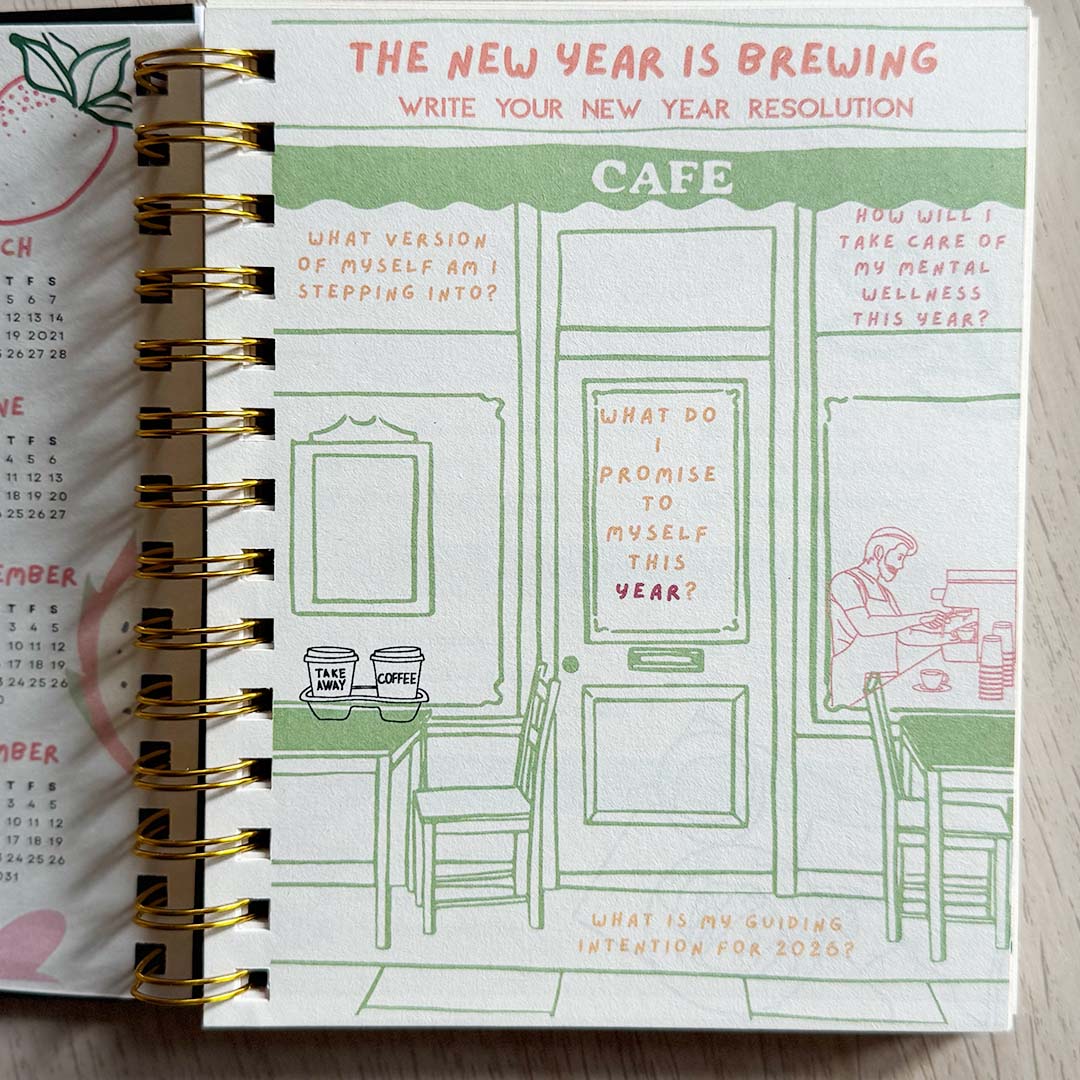 CH
T F S
5 6 7
12 13 14
19 20 21
26 27 28
NE
T F S
4 5 6
11 12 13
18 19 20
25 26 27
EMBER
T F S
3 4 5
10 11 12
17 18 19
24 25 26
MBER
T F S
3 4 5
10 11 12
17 18 19
24 25 26
31
THE NEW YEAR IS BREWING
WRITE YOUR NEW YEAR RESOLUTION
CAFE
WHAT VERSION
OF MYSELF AM I
STEPPING INTO?
HOW WILL I
TAKE CARE OF
MY MENTAL
WELLNESS
THIS YEAR?
WHAT DO
I
PROMISE
TO
MYSELF
THIS
YEAR?
TAKE
AWAY
COFFEE
WHAT IS MY GUIDING
INTENTION FOR 2026?